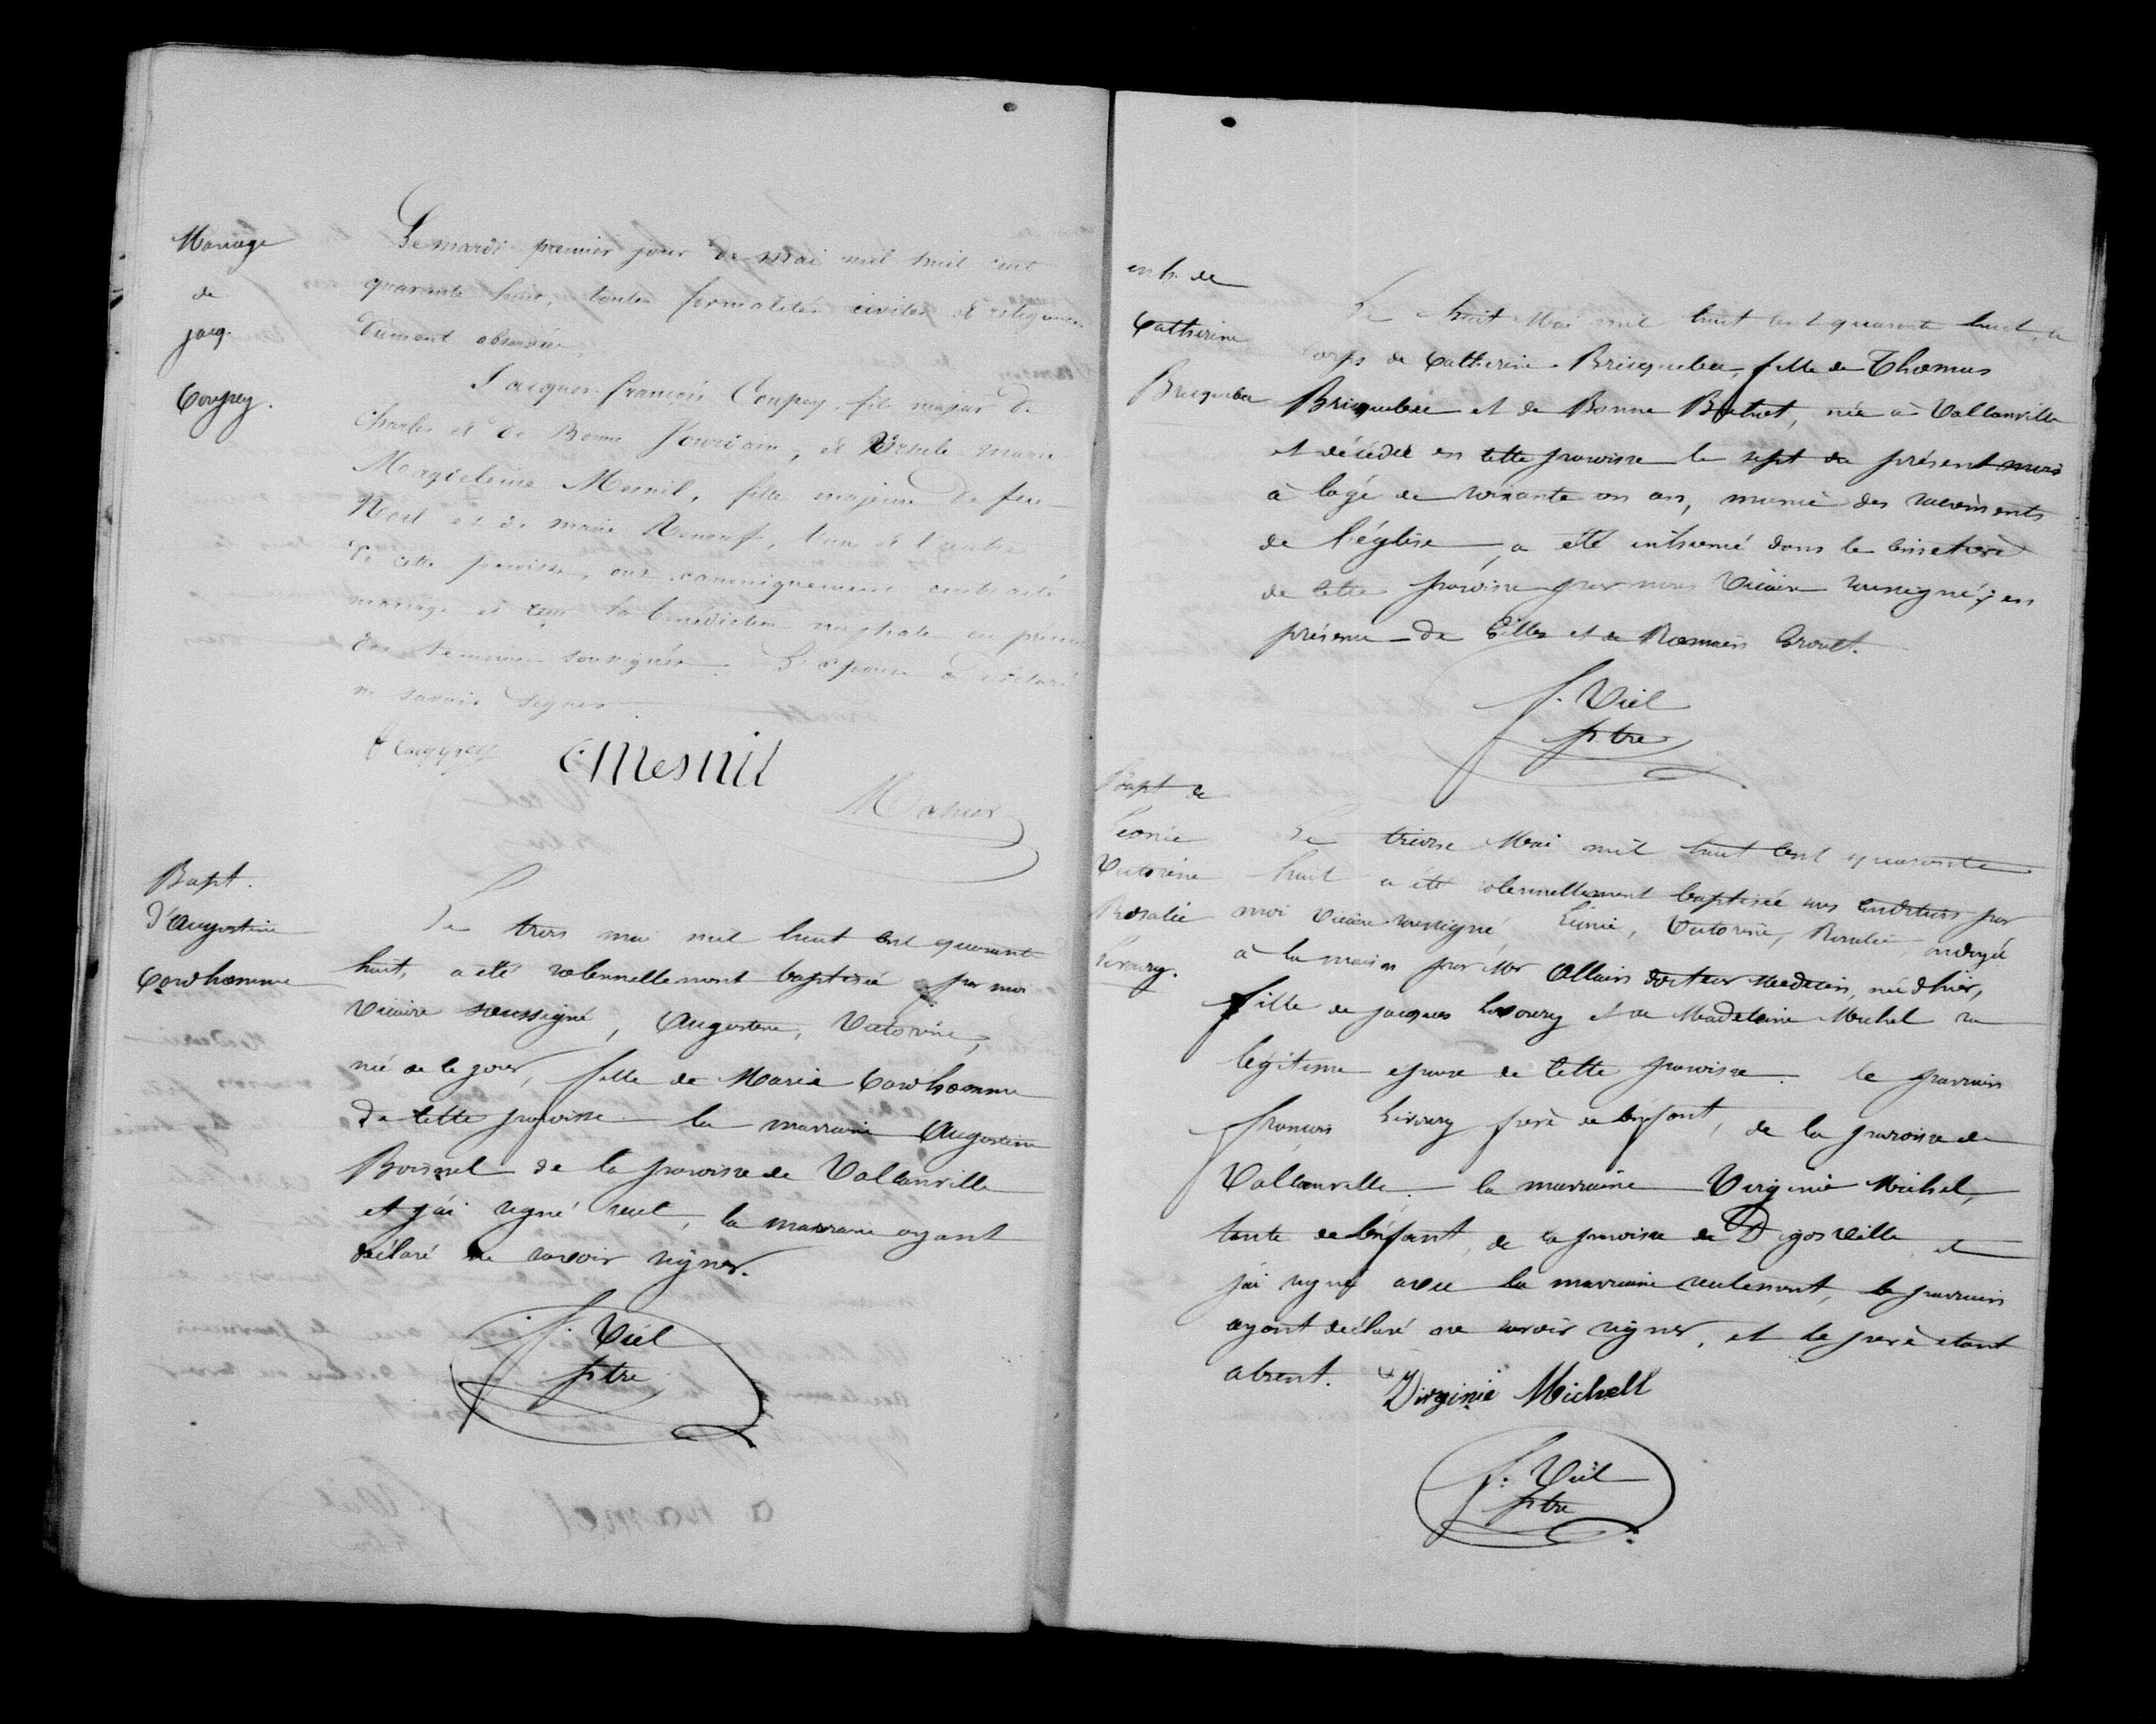 Mariage
de
jacq.
Coupey.
Le mardi premier jour de mai mil huit cent
quarante huit, toutes formalités civiles et religieuses
dûment observées,
Jacques françois Coupey, fils majeur de
Charles et de Bonne Jourdain, et Ursule marie
Magdeleine Mesnil, fille majeure de feu
Noel et de marie Renouf, l'un et l'autre
de cette paroisse, ont canoniquement contracté
mariage et reçu la bénédiction nuptiale en présence
des témoins soussignés. L'épouse a déclaré
ne savoir signer
f Couppey C Mesnil
Bapt.
d'Augustine
Cauchomme
Le trois mai mil huit cent quarante
huit, a été solennellement baptisée par moi
Vicaire soussigné, Augustine, Victorine,
née de le jour, fille de Marie
de cette paroisse. la marraine Augustine
de la paroisse de
et j'ai signé seul, la marraine ayant
déclaré ne savoir signer.
f. Viel
ptre
inh. de
Catherine
Bricquebec
Le huit Mai mil huit cent quarante huit, le
corps de Catherine Bricquebec, fille de Thomas
Bricquebec et de Bonne, née à
et décédée en cette paroisse le sept du présent mois
à l'agé de soixante un ans, munie des sacréments
de l'église, a été inhumé dans le cimetière
de cette paroisse par nous Vicaire soussigné; en
présence de Gilles et de Romain Groult.
f. Viel
ptre
Bapt de
Léonie
Victorine
Rosalie
Le treize Mai mil huit cent quarante
huit a été solennellement baptisée sous conditions par
moi Vicaire soussigné, Léonie, Victorine, Rosalie, ondoyée
à la maison par Mr Allain docteur Medecin, née d'hier,
fille de jacques et de Madeleine Michel sa
légitime épouse de cette paroisse. le parrain
françois frere de l'enfant, de la paroisse de
la marraine Virginie Michel,
tante de l'enfant, de la paroisse de Digosville et
j'ai signé avec la marraine seulement, le parrain
ayant déclaré ne savoir signer, et le perè etant
absent. Virginie Michell
f. Viel
ptre